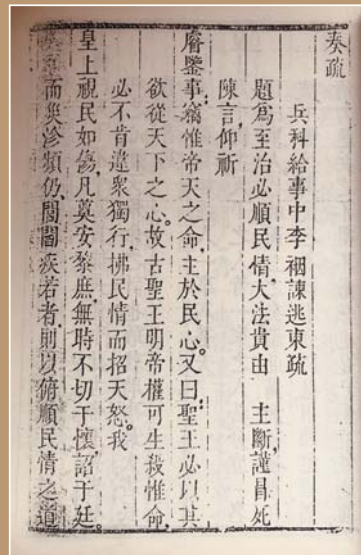 奏疏
兵科給事中李 裀諫逃東疏
題為至治必順民情大法貴由 主斷謹昌死
陳言仰祈
睿鑒事竊惟帝天之命主於民心又曰聖王必以其
欲從天下之心故古聖王明帝權可生殺惟命
必不肯違衆獨行拂民情而招天怒我
皇上視民如傷凡奠安黎庶無時不切于懷詔于廷
而災沴頻仍閭閻疾苦者則以俯順民情之道